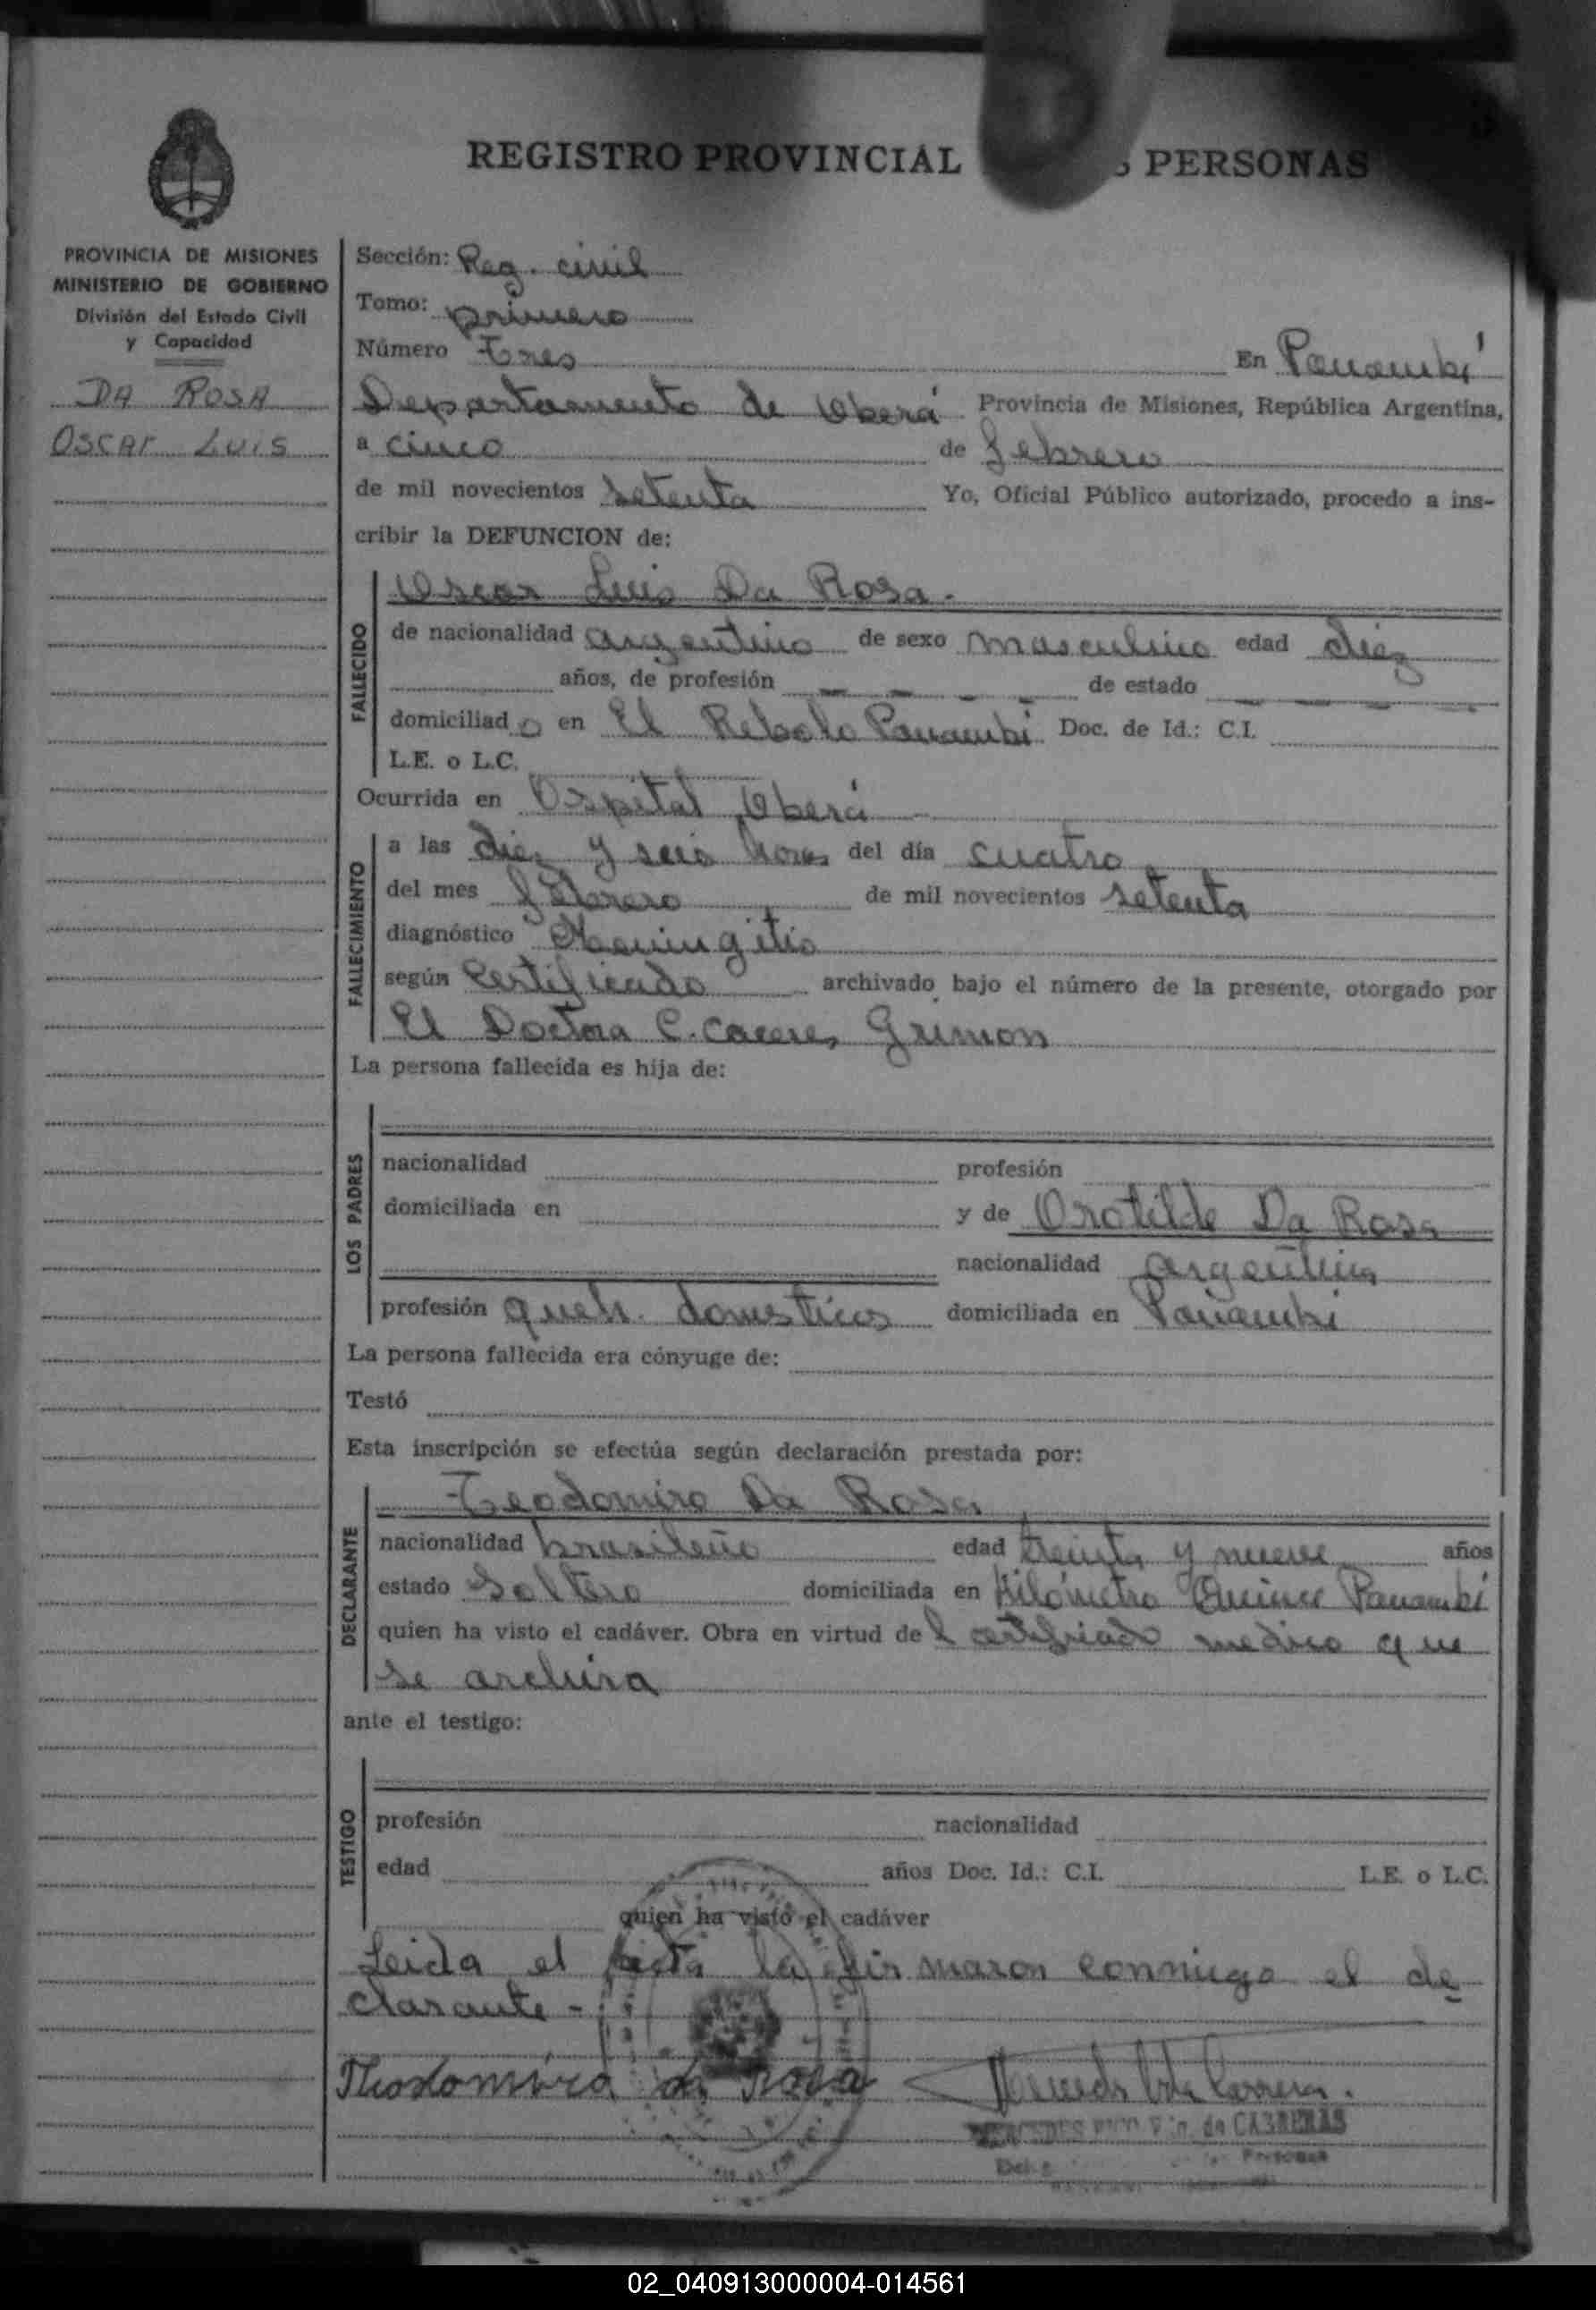 REGISTRO PROVINCIAL PERSONAS
PROVINCIA DE MISIONES
MINISTERIO DE GOBIERNO
División del Estado Civil
y Capacidad
DA ROSA
OSCAR LUIS
Sección: Reg. civil
Tomo: primero
Número Tres En Panambí
Departamento de Oberá Provincia de Misiones, República Argentina,
a cinco de febrero
de mil novecientos setenta Yo, Oficial Público autorizado, procedo a ins-
cribir la DEFUNCION de:
FALLECIDO
Oscar Luis Da Rosa.
de nacionalidad argentino de sexo masculino edad diez
años, de profesión — — — — de estado — — — —
domiciliado en El Panambi Doc. de Id.: C.I.
L.E. o L.C.
Ocurrida en Ospital Oberá
FALLECIMIENTO
a las diez y seis horas del día cuatro
del mes febrero de mil novecientos setenta
diagnóstico Meningitis
según Certificado archivado bajo el número de la presente, otorgado por
El Doctora C. Caceres Grimon
La persona fallecida es hija de:
LOS PADRES
nacionalidad profesión
domiciliada en y de Orotilde Da Rosa
nacionalidad argentina
profesión queh. domesticos domiciliada en Panambi
La persona fallecida era cónyuge de:
Testó
Esta inscripción se efectúa según declaración prestada por:
DECLARANTE
Teodomiro Da Rosa
nacionalidad brasileño edad treinta y nueve años
estado Soltero domiciliada en Kilómetro Quince Panambí
quien ha visto el cadáver. Obra en virtud del certificado medico que
se archiva
ante el testigo:
TESTIGO
profesión nacionalidad
edad años Doc. Id.: C.I. L.E. o L.C.
quien ha visto el cadáver
Leida el acta la firmaron conmigo el de
clarante -
Theodomiro da Rosa
de CABRERAS
02_040913000004-014561